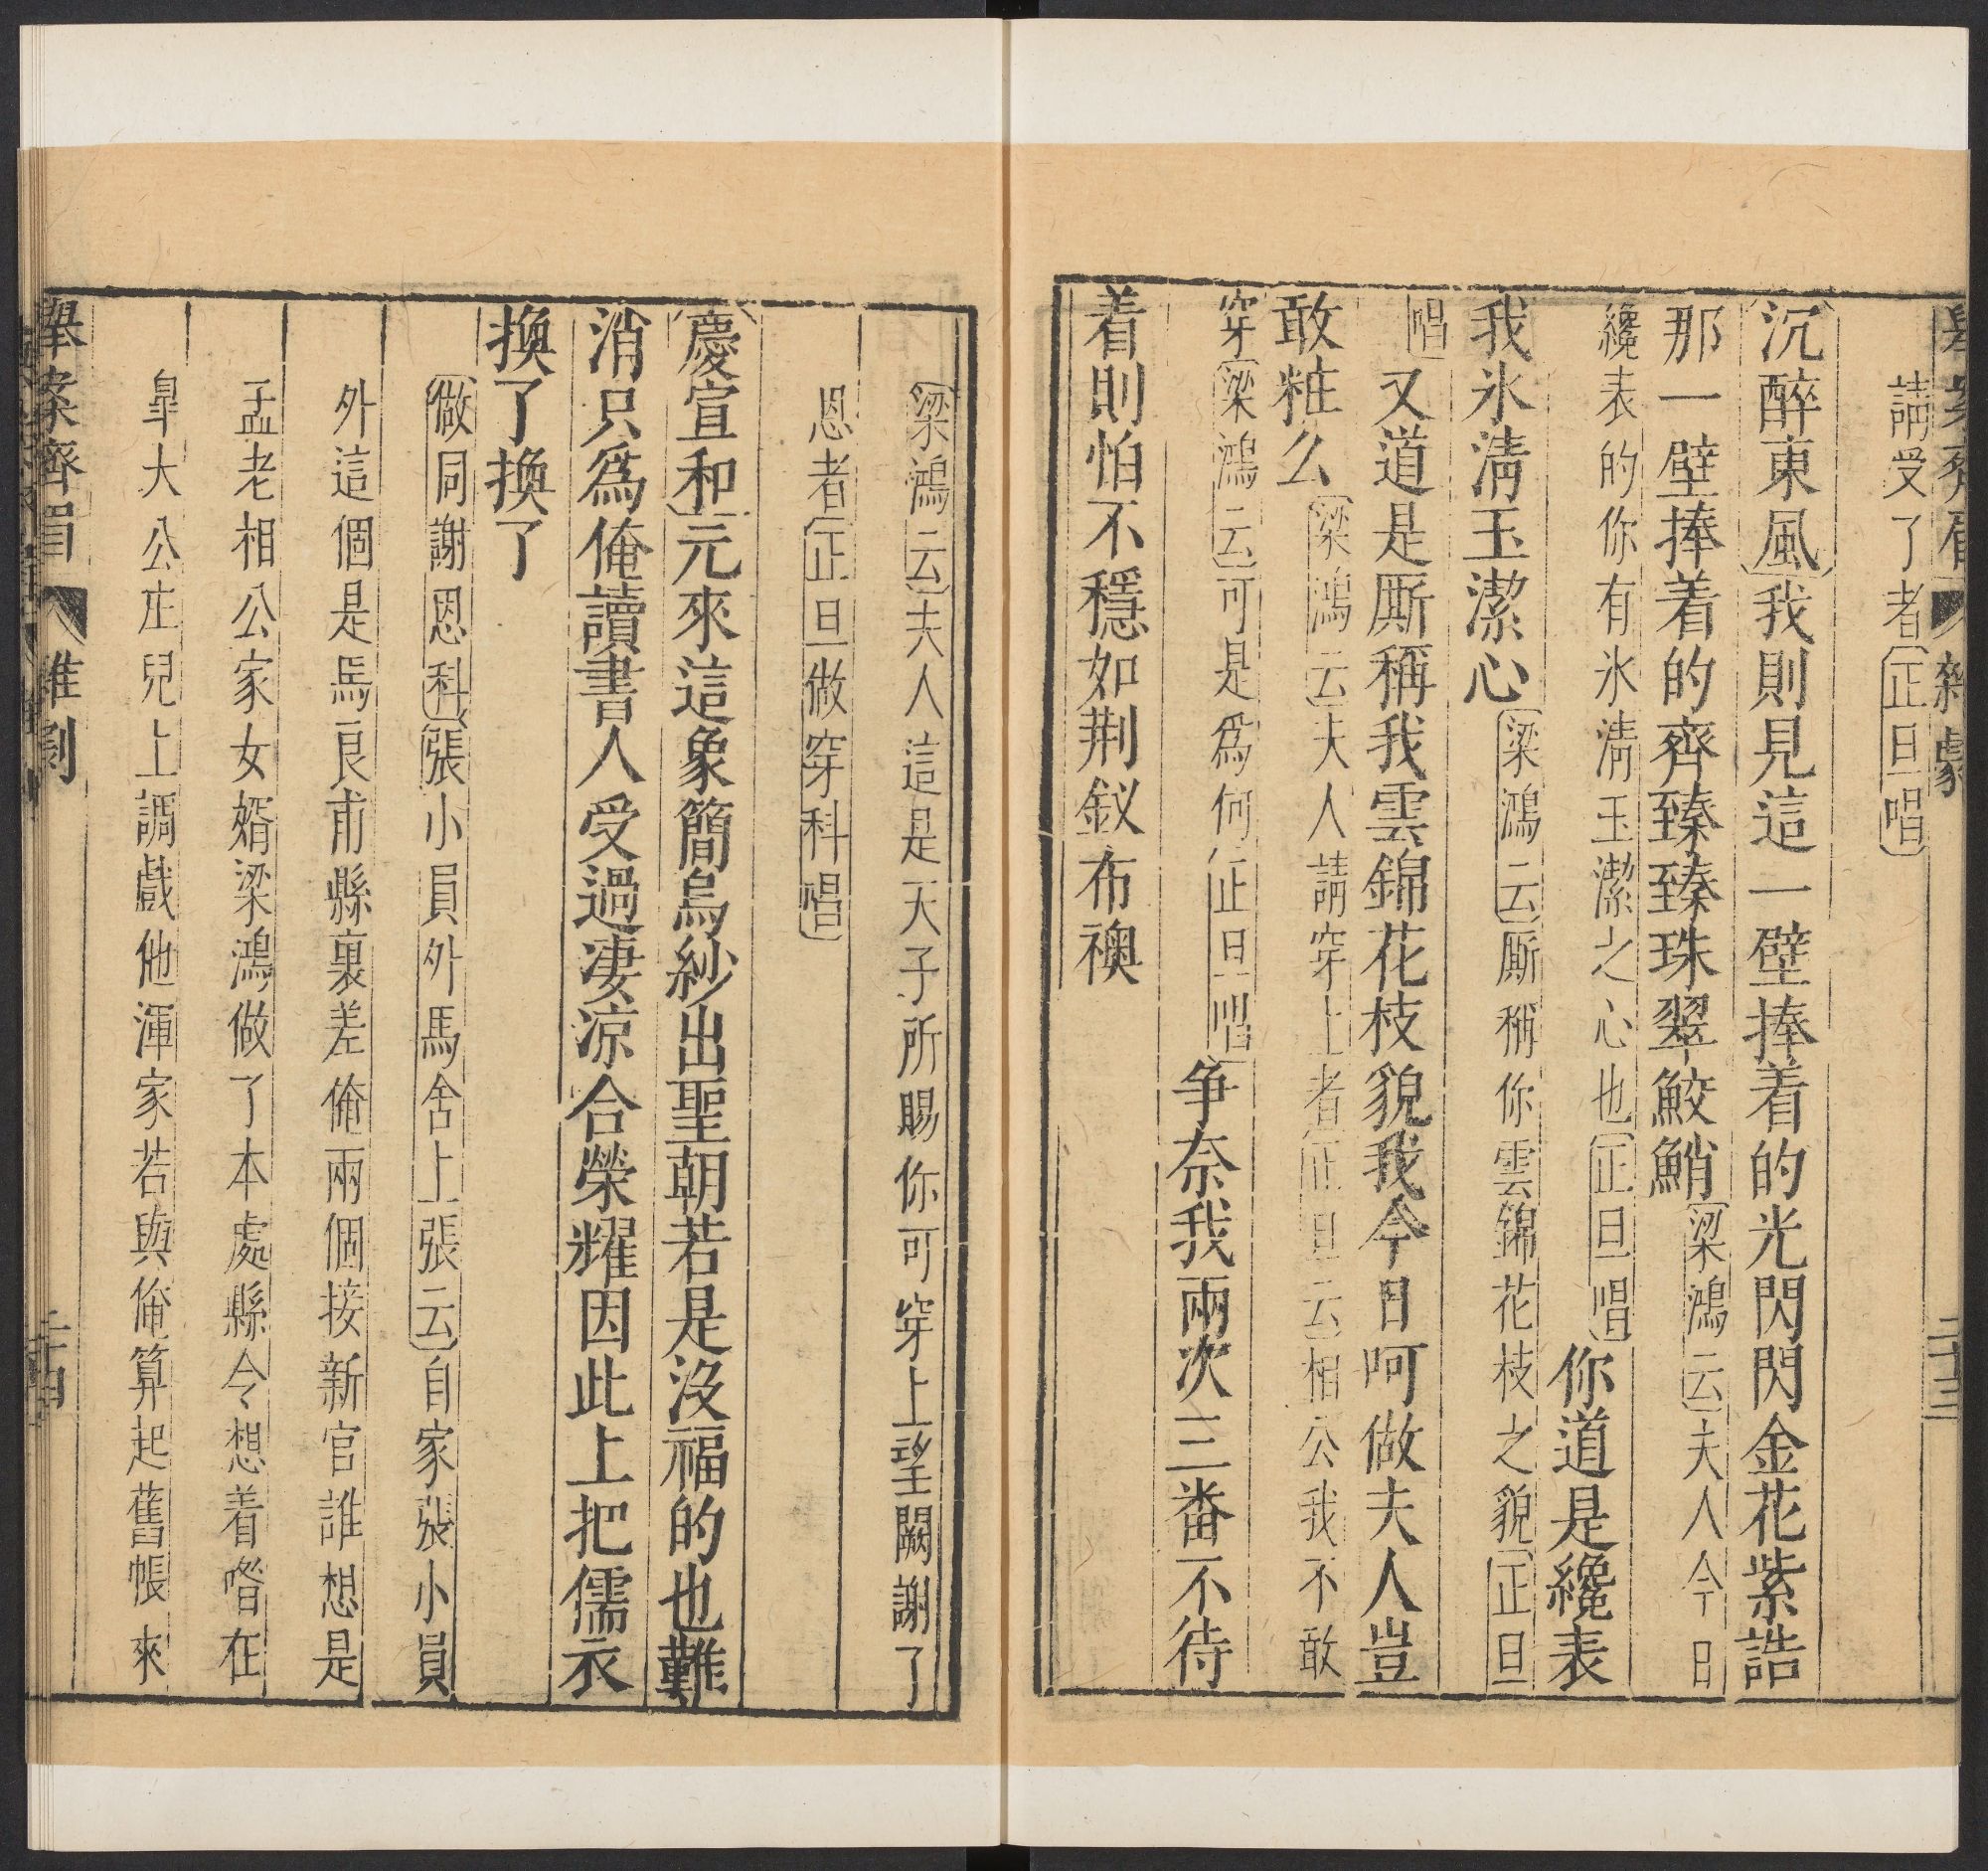 舉案齊眉 雜劇 二十三
請受了者正旦唱
沉醉東風我則見這一壁捧着的光閃閃金花紫誥
那一壁捧着的齊臻臻珠翠鮫鮹梁鴻云夫人今日
纔表的你有氷清玉潔之心也正旦唱你道是纔表
我氷清玉潔心梁鴻云厮稱你雲錦花枝之貌正旦
唱又道是厮稱我雲錦花枝貌我今日呵做夫人豈
敢粧么梁鴻云夫人請穿上者正旦云相公我不敢
穿梁鴻云可是爲何正旦唱争奈我兩次三番不待
着則怕不穩如荆釵布襖
梁鴻云夫人這是天子所賜你可穿上望闕謝了
恩者正旦做穿科唱
慶宣和元來這象簡烏紗出聖朝若是沒福的也難
消只爲俺讀書人受過凄凉合榮耀因此上把儒衣
換了換了
做同謝恩科張小員外馬舍上張云自家張小員
外這個是馬良甫縣裏差俺兩個接新官誰想是
孟老相公家女婿梁鴻做了本處縣令想着喒在
臯大公庄兒上調戲他渾家若與俺算起舊帳來
舉案齊眉 雜劇 二十四